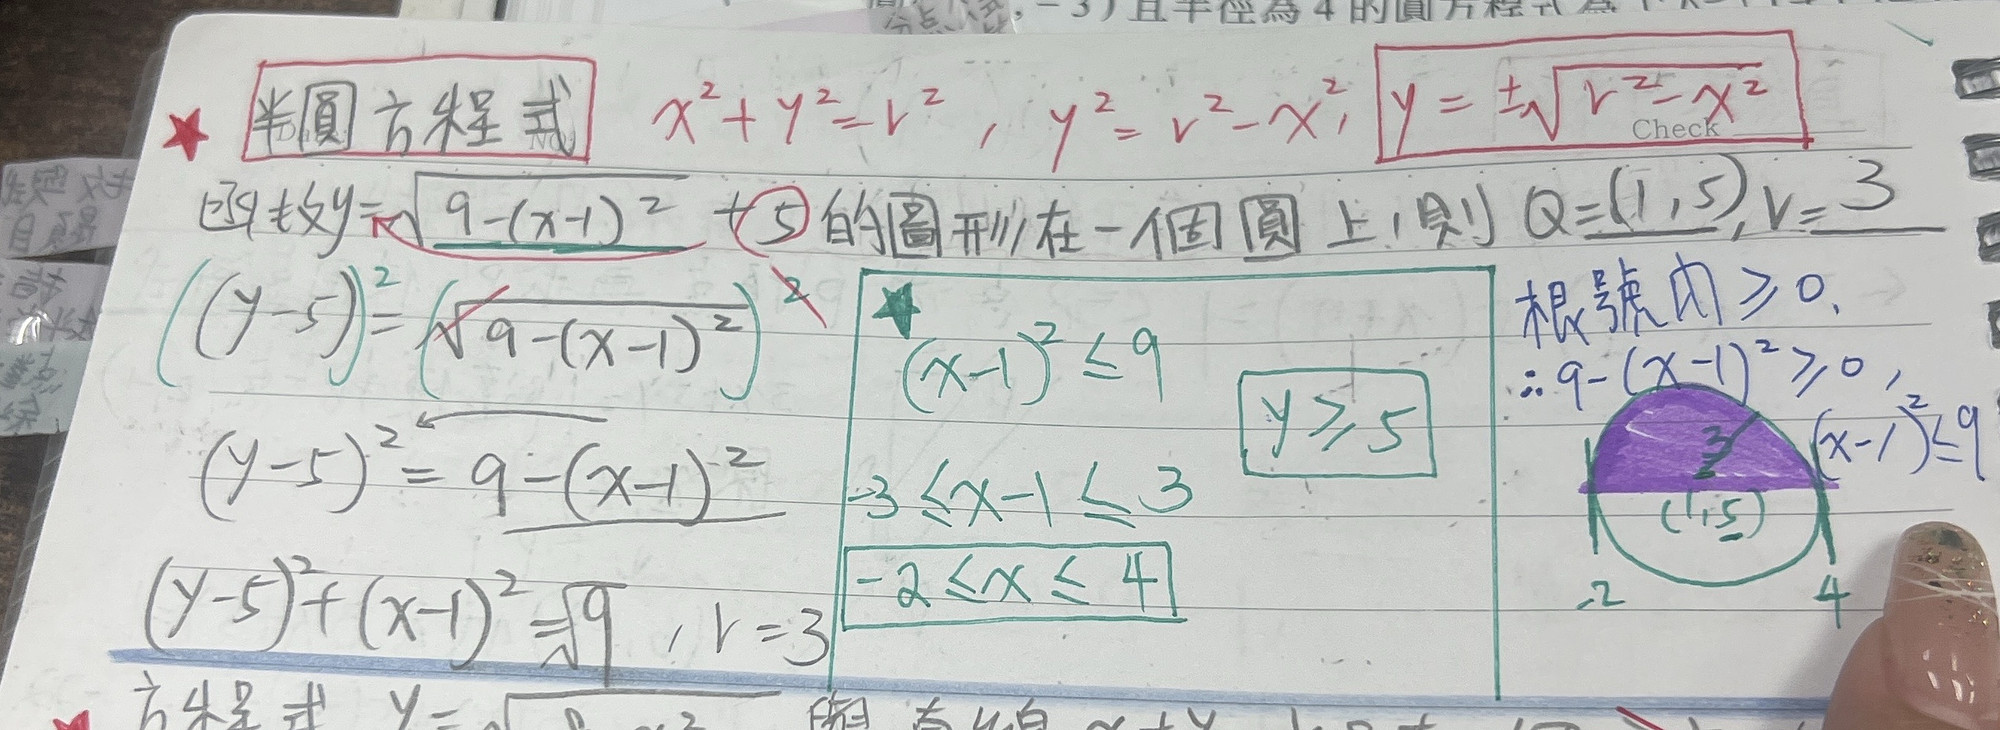 ,-3)且半徑為4的圓方程式為
半圓方程式 x²+y²=r² , y²=r²-x², y=±√(r²-x²)
Check
函数y=√(9-(x-1)²) +5的圖形在一個圓上,則 Q=(1,5), r=3
((y-5))²=(√(9-(x-1)²))²
(y-5)²=9-(x-1)²
(y-5)²+(x-1)²=√9 , r=3
★
(x-1)²≤9
y≥5
-3≤x-1≤3
-2≤x≤4
根號內≥0,
∴9-(x-1)²≥0,
(x-1)²≤9
3
(1,5)
-2 4
方程式 y=√